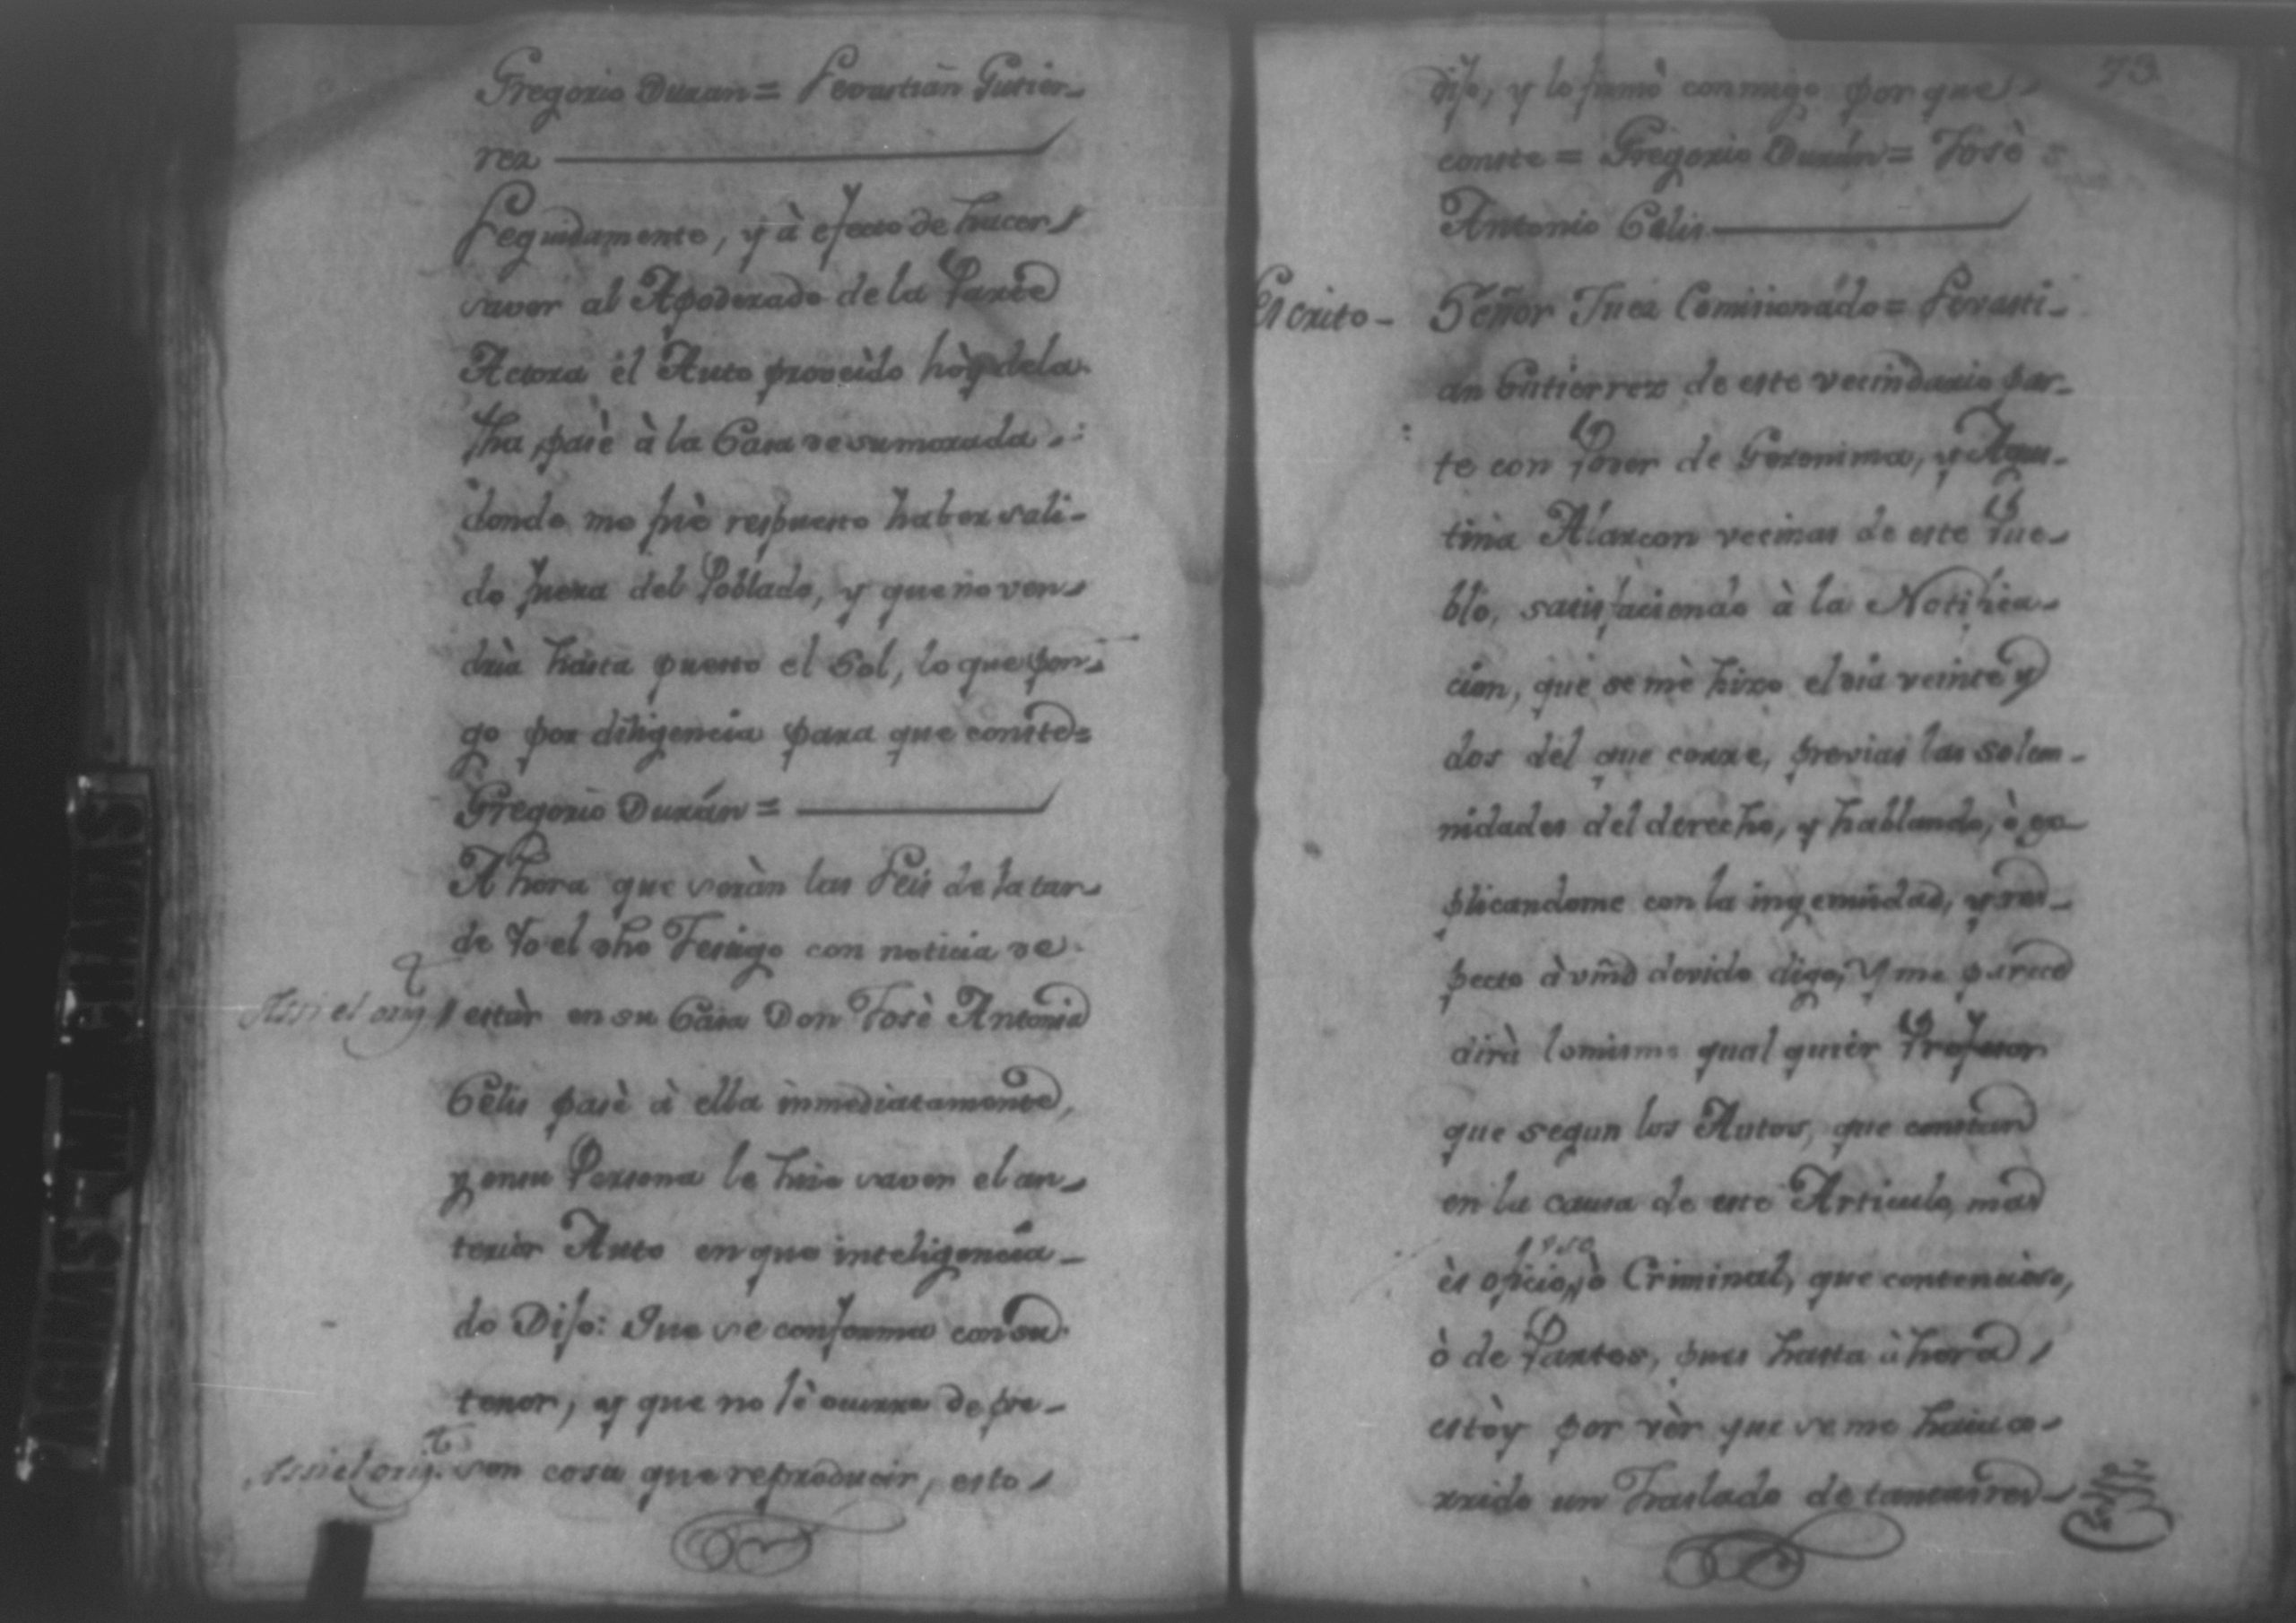 Gregorio Duran = Sevastian Gutier-
rez
Seguidamente, y à efecto de hacer
saver al Apoderado de la Parte
Actora él Auto proveìdo hòy dela
fha, pasè à la Casa de su morada
donde me fuè respuesto haber sali-
do fuera del Poblado, y que no ven-
dría hasta puesto el Sol, lo que pon-
go por diligencia para que conste =
Gregorio Durán =
Ahora que seràn las Seis de la tar-
de Yo el dho Testigo con noticia de
Assi el orig.
estàr en su Casa Don Josè Antonio
Célis pasè à ella inmediatamente,
y en su Persona le hize saver el an-
teriòr Auto en que inteligencia-
do Dijo: Que se conforma con su
tenor, y que no lè ocurre de pre-
Assi el orig.
sen cosa que reproducir, esto
73
dijo, y lo firmò conmigo por que
conste = Gregorio Durán = Josè
Antonio Celis
Escrito -
Señor Juez Comisionado = Sevasti-
an Gutierrez de este vecindario par-
te con Poder de Geronima, y Faus-
tina Alarcon vecinas de este Pue-
blo, satisfaciendo à la Notifica-
ción, que se mè hizo el día veinte y
dos del que corre, previas las solem-
nidades del derecho, y hablando, ò ex-
plicandome con la ingenuidad, y res-
pecto à vmd devido digo, Y me parece
dirà lo mismo qual quiér Profesor
que segun los Autos, que constan
en la causa de este Articulo, mas
ès oficioso, ò Criminal, que contencioso,
ò de Partes, pues hasta àhora
estòy por vèr que se me haia co-
rrido un Traslado de tantas res-